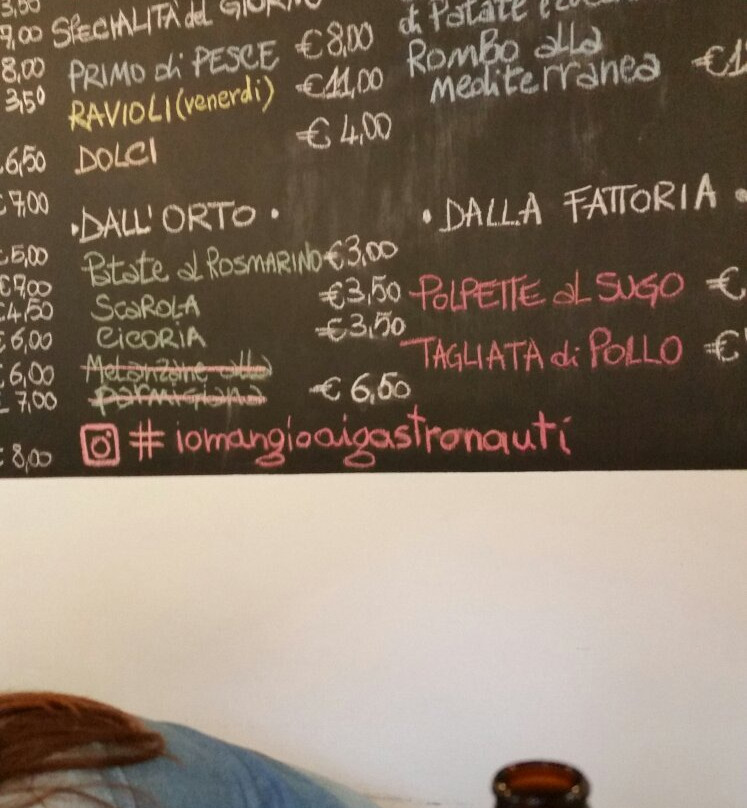 3,50
9,00
8,00
3,50
6,50
€7,00
€5,00
€7,00
€4,50
€6,00
€6,00
€7,00
€8,00
SPECIALITÀ del GIORNO
PRIMO di PESCE €8,00
RAVIOLI (venerdi) €11,00
DOLCI €4,00
• DALL' ORTO •
Patate al ROSMARINO €3,00
SCAROLA €3,50
CICORIA €3,50
Melanzane alla
Parmigiana €6,50
di Patate e
Rombo alla
Mediterranea €1
• DALLA FATTORIA •
POLPETTE al SUGO €
TAGLIATA di POLLO €
# iomangioaigastronauti